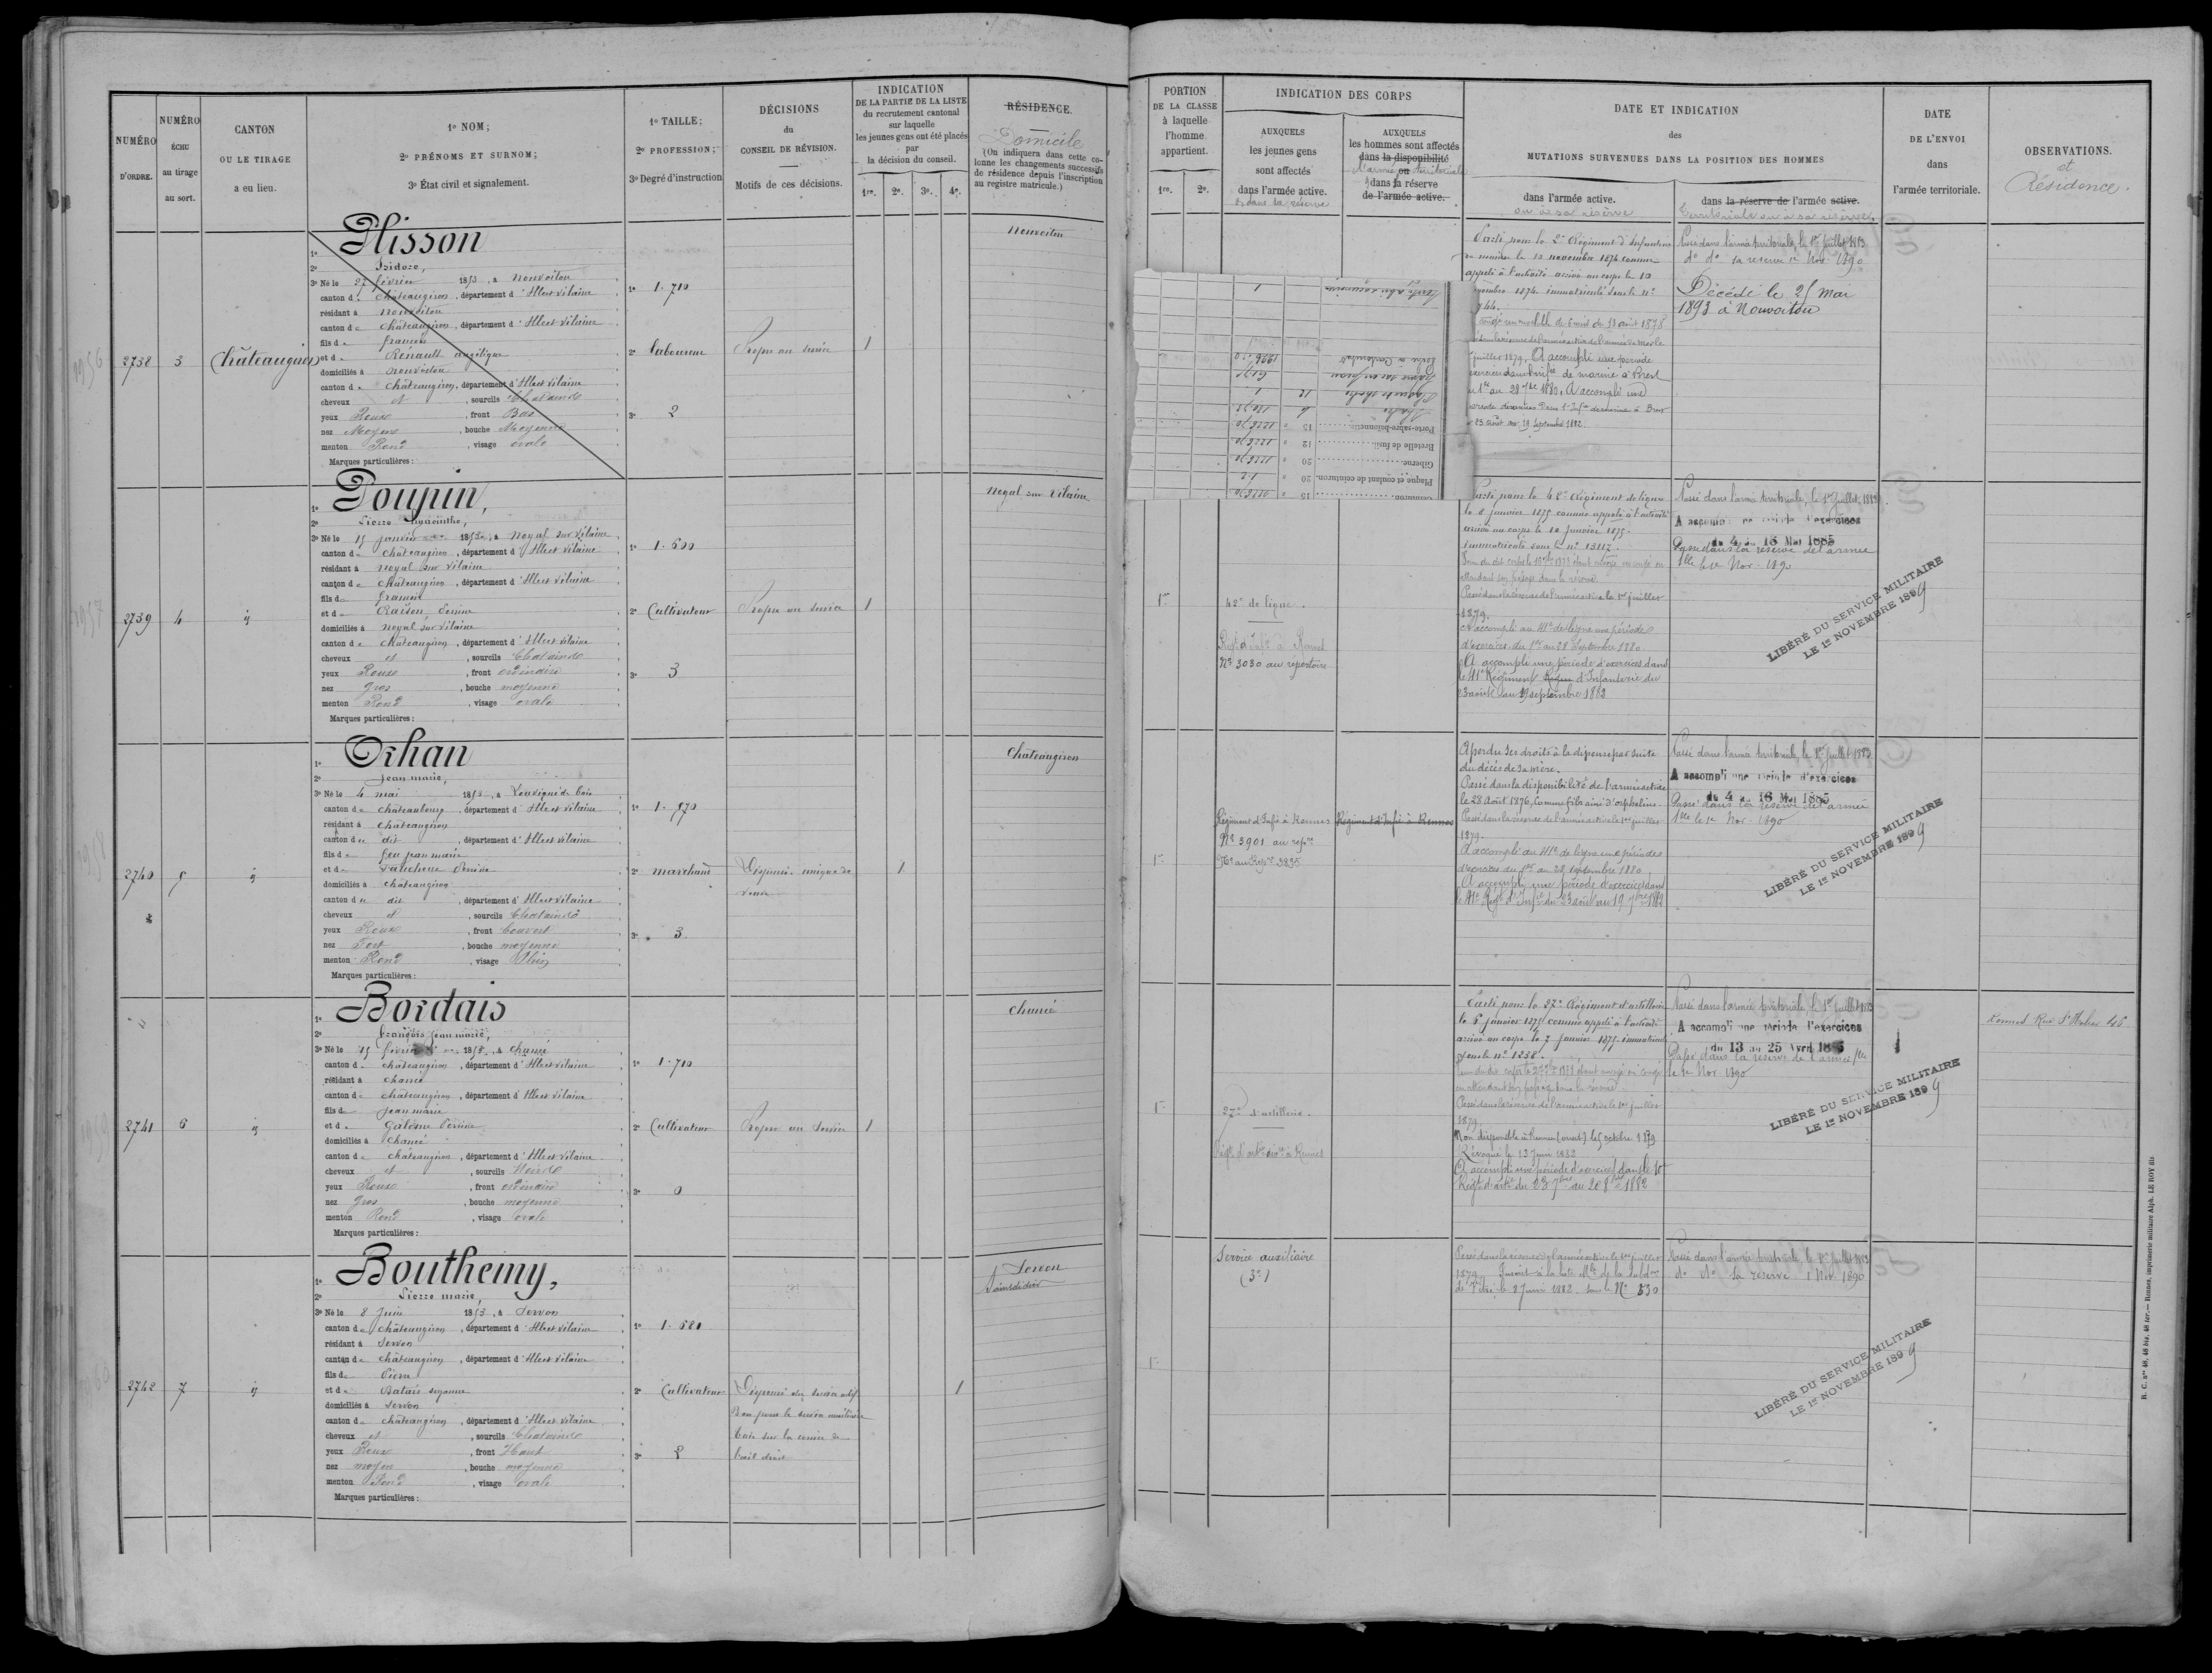 NUMÉRO
D'ORDRE.
NUMÉRO
ÉCHU
au tirage
au sort.
CANTON
OU LE TIRAGE
a eu lieu.
1º NOM;
2º PRÉNOMS ET SURNOM;
3º État civil et signalement.
1º TAILLE;
2º PROFESSION;
3º Degré d'instruction
DÉCISIONS
du
CONSEIL DE RÉVISION.
Motifs de ces décisions.
INDICATION
DE LA PARTIE DE LA LISTE
du recrutement cantonal
sur laquelle
les jeunes gens ont été placés
par
la décision du conseil.
1re. 2e. 3e. 4e.
RÉSIDENCE.
Domicile
(On indiquera dans cette co-
lonne les changements successifs
de résidence depuis l'inscription
au registre matricule.)
PORTION
DE LA CLASSE
à laquelle
l'homme
appartient.
1re. 2e.
INDICATION DES CORPS
AUXQUELS
les jeunes gens
sont affectés
dans l'armée active.
& dans la réserve
AUXQUELS
les hommes sont affectés
dans la disponibilité
l'armée ou territoriale
dans la réserve
de l'armée active.
DATE ET INDICATION
des
MUTATIONS SURVENUES DANS LA POSITION DES HOMMES
dans l'armée active.
ou à sa réserve
dans la réserve de l'armée active.
territoriale ou à sa réserve.
DATE
DE L'ENVOI
dans
l'armée territoriale.
OBSERVATIONS.
et
Résidence.
2738
3
Châteaugiron
1º Plisson
2º Isidore,
3º Né le 27 février 1853, à Nouvoitou
canton de Châteaugiron, département d'Ille et Vilaine
résidant à Nouvoitou
canton de Châteaugiron, département d'Ille et Vilaine
fils de francois
et de Renault angélique
domiciliés à Nouvoitou
canton de Châteaugiron, département d'Ille et Vilaine
cheveux et, sourcils Chatainds
yeux Roux, front Bas
nez Moyen, bouche Moyenne
menton Rond, visage ovale
Marques particulières:
1º 1.710
2º laboureur
3º 2
Propre au service
1
Nouvoitou
Parti pour le 2e Régiment d'Infanterie
de marine le 10 novembre 1874 comme
appelé à l'activité arrivé au corps le 10
novembre 1874 immatriculé sous le nº
juillet 1879. A accompli une période
exercices dans l'inf. de marine à Brest
du 1er au 28 7bre 1880. A accompli une
période d'exercices
23 août au 19 Septembre 1882.
Passé dans l'armée territoriale, le 1er Juillet 1883
dº dº sa reserve 1er Nov. 1890
Décédé le 25 Mai
1893 à Nouvoitou
Plaque et coulant de ceinturon. 20
Giberne 20
Bretelle de fusil 12
Porte-sabre-baïonnette 15
2739
4
id
1º Poupin,
2º Pierre hyacinthe,
3º Né le 15 janvier 1853, à Noyal sur Vilaine
canton de Châteaugiron, département d'Ille et Vilaine
résidant à Noyal sur Vilaine
canton de Châteaugiron, département d'Ille et Vilaine
fils de francois
et de Raison, Perrine
domiciliés à Noyal sur Vilaine
canton de Châteaugiron, département d'Ille et Vilaine
cheveux et, sourcils Chatainds
yeux Roux, front ordinaire
nez gros, bouche moyenne
menton Rond, visage ovale
Marques particulières:
1º 1.600
2º Cultivateur
3º 3
Propre au service
1
Noyal sur Vilaine
1re
42e de ligne.
Régt d'Infie à Rennes
Nº 3030 au répertoire
Parti pour le 42e Régiment de ligne
le 8 janvier 1875 comme appelé à l'activité
arrivé au corps le 10 janvier 1875.
immatriculé sous le nº 13117.
attendant son passage dans la réserve.
Passé dans la réserve de l'armée active le 1er juillet
1879.
A accompli au 41e de ligne une période
d'exercices du 1er au 28 Septembre 1880.
A accompli une période d'exercices dans
le 41e Régiment d'Infanterie du
23 août au 19 septembre 1882
Passé dans l'armée territoriale, le 1er Juillet 1883.
A accompli une période d'exercices
du 4 au 16 Mai 1885
Passé dans la réserve de l'armée
tlle le 1er Nov. 1890
LIBÉRÉ DU SERVICE MILITAIRE
LE 1er NOVEMBRE 1899
2740
5
id
1º Orhan
2º Jean marie,
3º Né le 4 mai 1853, à Louvigné de bais
canton de Châteaubourg, département d'Ille et Vilaine
résidant à Châteaugiron
canton du dit, département d'Ille et Vilaine
fils de feu jean marie
et de Perrine
domiciliés à Châteaugiron
canton du dit, département d'Ille et Vilaine
cheveux et, sourcils Chatainds
yeux Roux, front Couvert
nez Fort, bouche moyenne
menton Rond, visage Plein
Marques particulières:
1º 1.570
2º marchand
3º 3
Dispensé. unique de
veuve
1
Châteaugiron
1re
Régiment d'Infie à Rennes
Nº 3901 au repre
Régiment d'Infie à Rennes
A perdu ses droits à la dispense par suite
du décès de sa mère.
Passé dans la disponibilité de l'armée active
le 28 Août 1876, comme fils ainé d'orphelins.
Passé dans la réserve de l'armée active le 1er juillet
1879.
A accompli au 41e de ligne une période
d'exercices du 1er au 28 septembre 1880.
A accompli une période d'exercices dans
le 41e Régt d'Infie du 23 août au 19 7bre 1882
Passé dans l'armée territoriale, le 1er Juillet 1883
A accompli une période d'exercices
du 4 au 16 Mai 1885
Passé dans la réserve de l'armée
tlle le 1er Nov. 1890
LIBÉRÉ DU SERVICE MILITAIRE
LE 1er NOVEMBRE 1899
2741
6
id
1º Bordais
2º françois jean marie,
3º Né le 15 février 1853, à Chancé
canton de Châteaugiron, département d'Ille et Vilaine
résidant à Chancé
canton de Châteaugiron, département d'Ille et Vilaine
fils de jean marie
et de Perrine
domiciliés à Chancé
canton de Châteaugiron, département d'Ille et Vilaine
cheveux et, sourcils Noirds
yeux Roux, front ordinaire
nez gros, bouche moyenne
menton Rond, visage ovale
Marques particulières:
1º 1.710
2º Cultivateur
3º 0
Propre au service
1
Chancé
1re
27e d'artillerie.
Régt d'artie à Rennes
Parti pour le 27e Régiment d'artillerie
le 6 janvier 1875 comme appelé à l'activité
arrivé au corps le 7 janvier 1875. immatriculé
sous le nº 1238.
en attendant son passage dans la réserve.
Passé dans la réserve de l'armée active le 1er juillet
1879.
Non disponible à Rennes (ouest) le 5 octobre 1879
Révoqué le 13 Juin 1882
A accompli une période d'exercices dans le 10e
Régt d'artie du 23 7bre au 20 8bre 1882
Passé dans l'armée territoriale, le 1er Juillet 1883
A accompli une période d'exercices
du 13 au 25 Avril 1885
Passé dans la réserve de l'armée tlle
le 1er Nov 1890
LIBÉRÉ DU SERVICE MILITAIRE
LE 1er NOVEMBRE 1899
Rennes Rue St Hélier 46
2742
7
id
1º Bouthemy,
2º Pierre marie,
3º Né le 8 Juin 1853, à Servon
canton de Châteaugiron, département d'Ille et Vilaine
résidant à Servon
canton de Châteaugiron, département d'Ille et Vilaine
fils de Pierre
et de Batais suzanne
domiciliés à Servon
canton de Châteaugiron, département d'Ille et Vilaine
cheveux et, sourcils Chatainds
yeux Roux, front Haut
nez moyen, bouche moyenne
menton Rond, visage ovale
Marques particulières:
1º 1.680
2º Cultivateur
3º 2
Dispensé du service actif
Bon pour le service auxiliaire
taie sur la cornée de
l'oeil droit
1
Servon
1re
Service auxiliaire
(3e)
Passé dans la réserve de l'armée active le 1er juillet
1879.
le 8 Juin 1882 sous le Nº 530
Passé dans l'armée territoriale, le 1er Juillet 1883
dº dº sa réserve 1 Nov. 1890
LIBÉRÉ DU SERVICE MILITAIRE
LE 1er NOVEMBRE 1899
R. C. Nos 48, 48 bis, 48 ter. — Rennes, imprimerie militaire Alph. LE ROY fils.